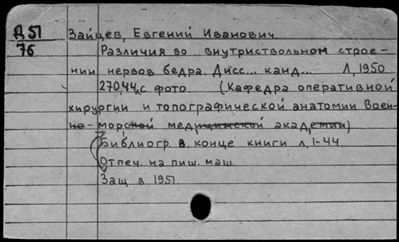 Д 51
76
Зайцев, Евгений Иванович.
Различия во внутриствольном строе-
нии нервов бедра. Дисс... канд... Л, 1950
270,44,с. фото (Кафедра оперативной
хирургии и топографической анатомии Воен-
но-морской медицинской академии)
Библиогр. в конце книги л. 1-44
Отпеч. на пиш. маш.
Защ. в 1951.